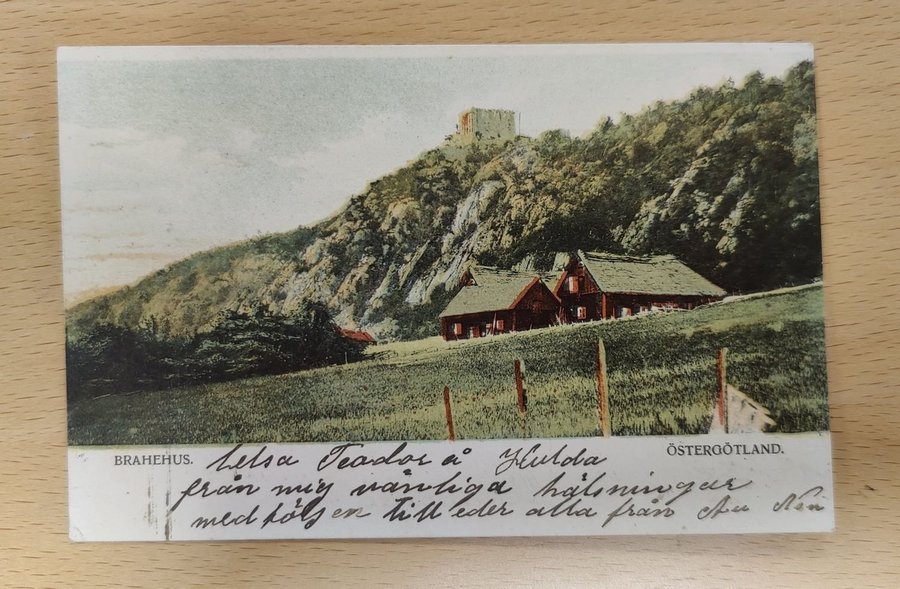 BRAHEHUS.
ÖSTERGÖTLAND.
helsa Teador å Hulda
från mig vänliga hälsningar
med hölsen till eder alla från